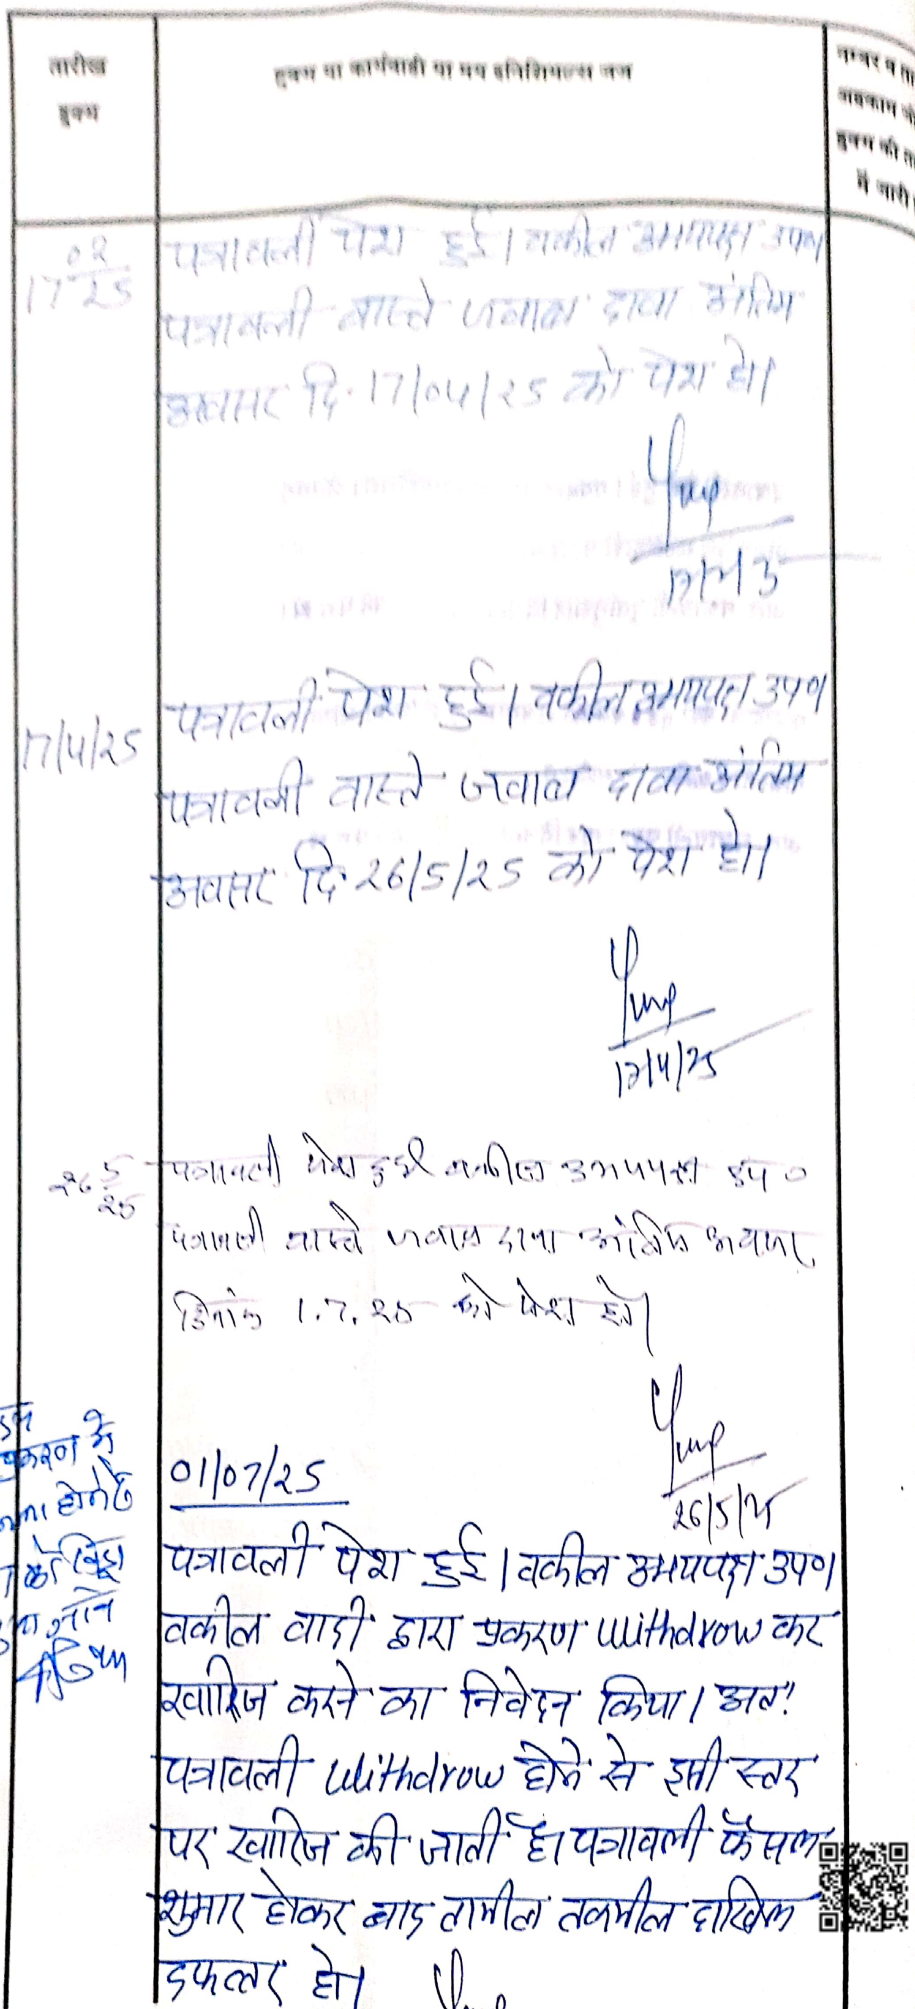 तारीख
हुक्म
हुक्म या कार्यवाही या मय इनिशियल्स जज
नम्बर व ता
अहकाम जो
हुक्म की ता
में जारी
17 02/25
पत्रावली पेश हुई। वकील उभयपक्ष उप०।
पत्रावली वास्ते जवाब दावा अंतिम
अवसर दि. 17/04/25 को पेश हो।
17/4/25
पत्रावली पेश हुई। वकील उभयपक्ष उप०।
पत्रावली वास्ते जवाब दावा अंतिम
अवसर दि. 26/5/25 को पेश हो।
17/4/25
26 5/25
पत्रावली पेश हुई वकील उभयपक्ष उप०
पत्रावली वास्ते जवाब दावा अंतिम अवसर
दिनांक 1.7.25 को पेश हो।
26/5/25
प्रकरण में
होने से
को
जाने
01/07/25
पत्रावली पेश हुई। वकील उभयपक्ष उप०।
वकील वादी द्वारा प्रकरण withdrow कर
खारिज करने का निवेदन किया। अतः
पत्रावली withdrow होने से इसी स्तर
पर खारिज की जाती है। पत्रावली फैसल
शुमार होकर बाद तामील तकमील दाखिल
दफ्तर हो।